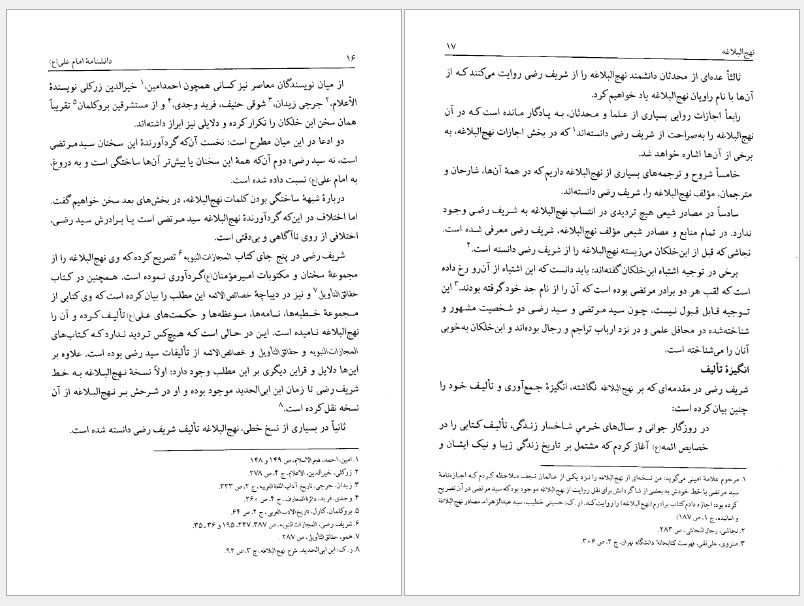 ۱۶
دانشنامهٔ امام علی(ع)
از میان نویسندگان معاصر نیز کسانی همچون احمدامین،۱ خیرالدین زرکلی نویسندهٔ
الأعلام،۲ جرجی زیدان،۳ شوقی حنیف، فرید وجدی،۴ و از مستشرقین بروکلمان۵ تقریباً
همان سخن ابن خلکان را تکرار کرده و دلایلی نیز ابراز داشته‌اند.
دو ادعا در این میان مطرح است: نخست آن‌که گردآورندهٔ این سخنان سید مرتضی
است، نه سید رضی؛ دوم آن‌که همهٔ این سخنان یا بیش‌تر آن‌ها ساختگی است و به دروغ،
به امام علی(ع) نسبت داده شده است.
دربارهٔ شبههٔ ساختگی بودن کلمات نهج‌البلاغه، در بخش‌های بعد سخن خواهیم گفت.
اما اختلاف در این‌که گردآورندهٔ نهج‌البلاغه سید مرتضی است یا برادرش سید رضی،
اختلافی از روی ناآگاهی و بی‌دقتی است.
شریف رضی در پنج جای کتاب المجازات النبویه۶ تصریح کرده که وی نهج‌البلاغه را از
مجموعهٔ سخنان و مکتوبات امیرمؤمنان(ع) گردآوری نموده است. همچنین در کتاب
حقائق التأویل۷ و نیز در دیباچهٔ خصائص الائمه این مطلب را بیان کرده است که وی کتابی از
مجموعهٔ خطبه‌ها، نامه‌ها، موعظه‌ها و حکمت‌های علی(ع) تألیف کرده و آن را
نهج‌البلاغه نامیده است. این در حالی است که هیچ‌کس تردید ندارد که کتاب‌های
المجازات النبویه و حقائق التأویل و خصائص الائمه از تألیفات سید رضی بوده است. علاوه بر
این‌ها دلایل و قراین دیگری بر این مطلب وجود دارد: اولاً نسخهٔ نهج‌البلاغه به خط
شریف رضی تا زمان ابن ابی‌الحدید موجود بوده و او در شرحش بر نهج‌البلاغه از آن
نسخه نقل کرده است.۸
ثانیاً در بسیاری از نسخ خطی، نهج‌البلاغه تألیف شریف رضی دانسته شده است.
۱. امین، احمد، فجر الاسلام، ص ۱۴۹ و ۱۴۸.
۲. زرکلی، خیرالدین، الاعلام، ج ۴، ص ۲۷۸.
۳. زیدان، جرجی، تاریخ آداب اللغة العربیه، ج ۲، ص ۳۳۳.
۴. وجدی، فرید، دائرة المعارف، ج ۴، ص ۲۶۰.
۵. بروکلمان، کارل، تاریخ الادب العربی، ج ۲، ص ۶۴.
۶. شریف رضی، المجازات النبویه، ص ۳۸۷، ۲۴۷، ۱۹۵ و ۳۶، ۳۵.
۷. همو، حقائق التأویل، ص ۲۸۷.
۸. ر.ک: ابن ابی‌الحدید، شرح نهج‌البلاغه، ج ۳، ص ۹۲.
۱۷
نهج‌البلاغه
ثالثاً عده‌ای از محدثان دانشمند نهج‌البلاغه را از شریف رضی روایت می‌کنند که از
آن‌ها با نام راویان نهج‌البلاغه یاد خواهیم کرد.
رابعاً اجازات روایی بسیاری از علما و محدثان، به یادگار مانده است که در آن
نهج‌البلاغه را به‌صراحت از شریف رضی دانسته‌اند۱ که در بخش اجازات نهج‌البلاغه، به
برخی از آن‌ها اشاره خواهد شد.
خامساً شروح و ترجمه‌های بسیاری از نهج‌البلاغه داریم که در همهٔ آن‌ها، شارحان و
مترجمان، مؤلف نهج‌البلاغه را، شریف رضی دانسته‌اند.
سادساً در مصادر شیعی هیچ تردیدی در انتساب نهج‌البلاغه به شریف رضی وجود
ندارد. در تمام منابع و مصادر شیعی مؤلف نهج‌البلاغه، شریف رضی معرفی شده است.
نجاشی که قبل از ابن‌خلکان می‌زیسته نهج‌البلاغه را از شریف رضی دانسته است.۲
برخی در توجیه اشتباه ابن‌خلکان گفته‌اند: باید دانست که این اشتباه از آن‌رو رخ داده
است که لقب هر دو برادر مرتضی بوده است که آن را از نام جد خود گرفته بودند.۳ این
توجیه قابل قبول نیست، چون سید مرتضی و سید رضی دو شخصیت مشهور و
شناخته‌شده در محافل علمی و در نزد ارباب تراجم و رجال بوده‌اند و ابن‌خلکان به‌خوبی
آنان را می‌شناخته است.
انگیزهٔ تألیف
شریف رضی در مقدمه‌ای که بر نهج‌البلاغه نگاشته، انگیزهٔ جمع‌آوری و تألیف خود را
چنین بیان کرده است:
در روزگار جوانی و سال‌های خرمی شاخسار زندگی، تألیف کتابی را در
خصایص ائمه(ع) آغاز کردم که مشتمل بر تاریخ زندگی زیبا و نیک ایشان و
۱. مرحوم علامهٔ امینی می‌گوید: من نسخه‌ای از نهج‌البلاغه را نزد یکی از عالمان نجف ملاحظه کردم که اجازه‌نامهٔ
سید مرتضی با خط خودش به بعضی از شاگردانش برای نقل روایت از نهج‌البلاغه موجود بود که سید مرتضی در آن تصریح
کرده بود: اجازه دادم کتاب برادرم (نهج‌البلاغه) را روایت کند. (ر.ک: حسینی خطیب، سید عبدالزهراء، مصادر نهج‌البلاغه
و اسانیده، ج ۱، ص ۱۸۷)
۲. نجاشی، رجال النجاشی، ص ۲۸۳.
۳. منزوی، علی‌نقی، فهرست کتابخانهٔ دانشگاه تهران، ج ۲، ص ۳۰۶.